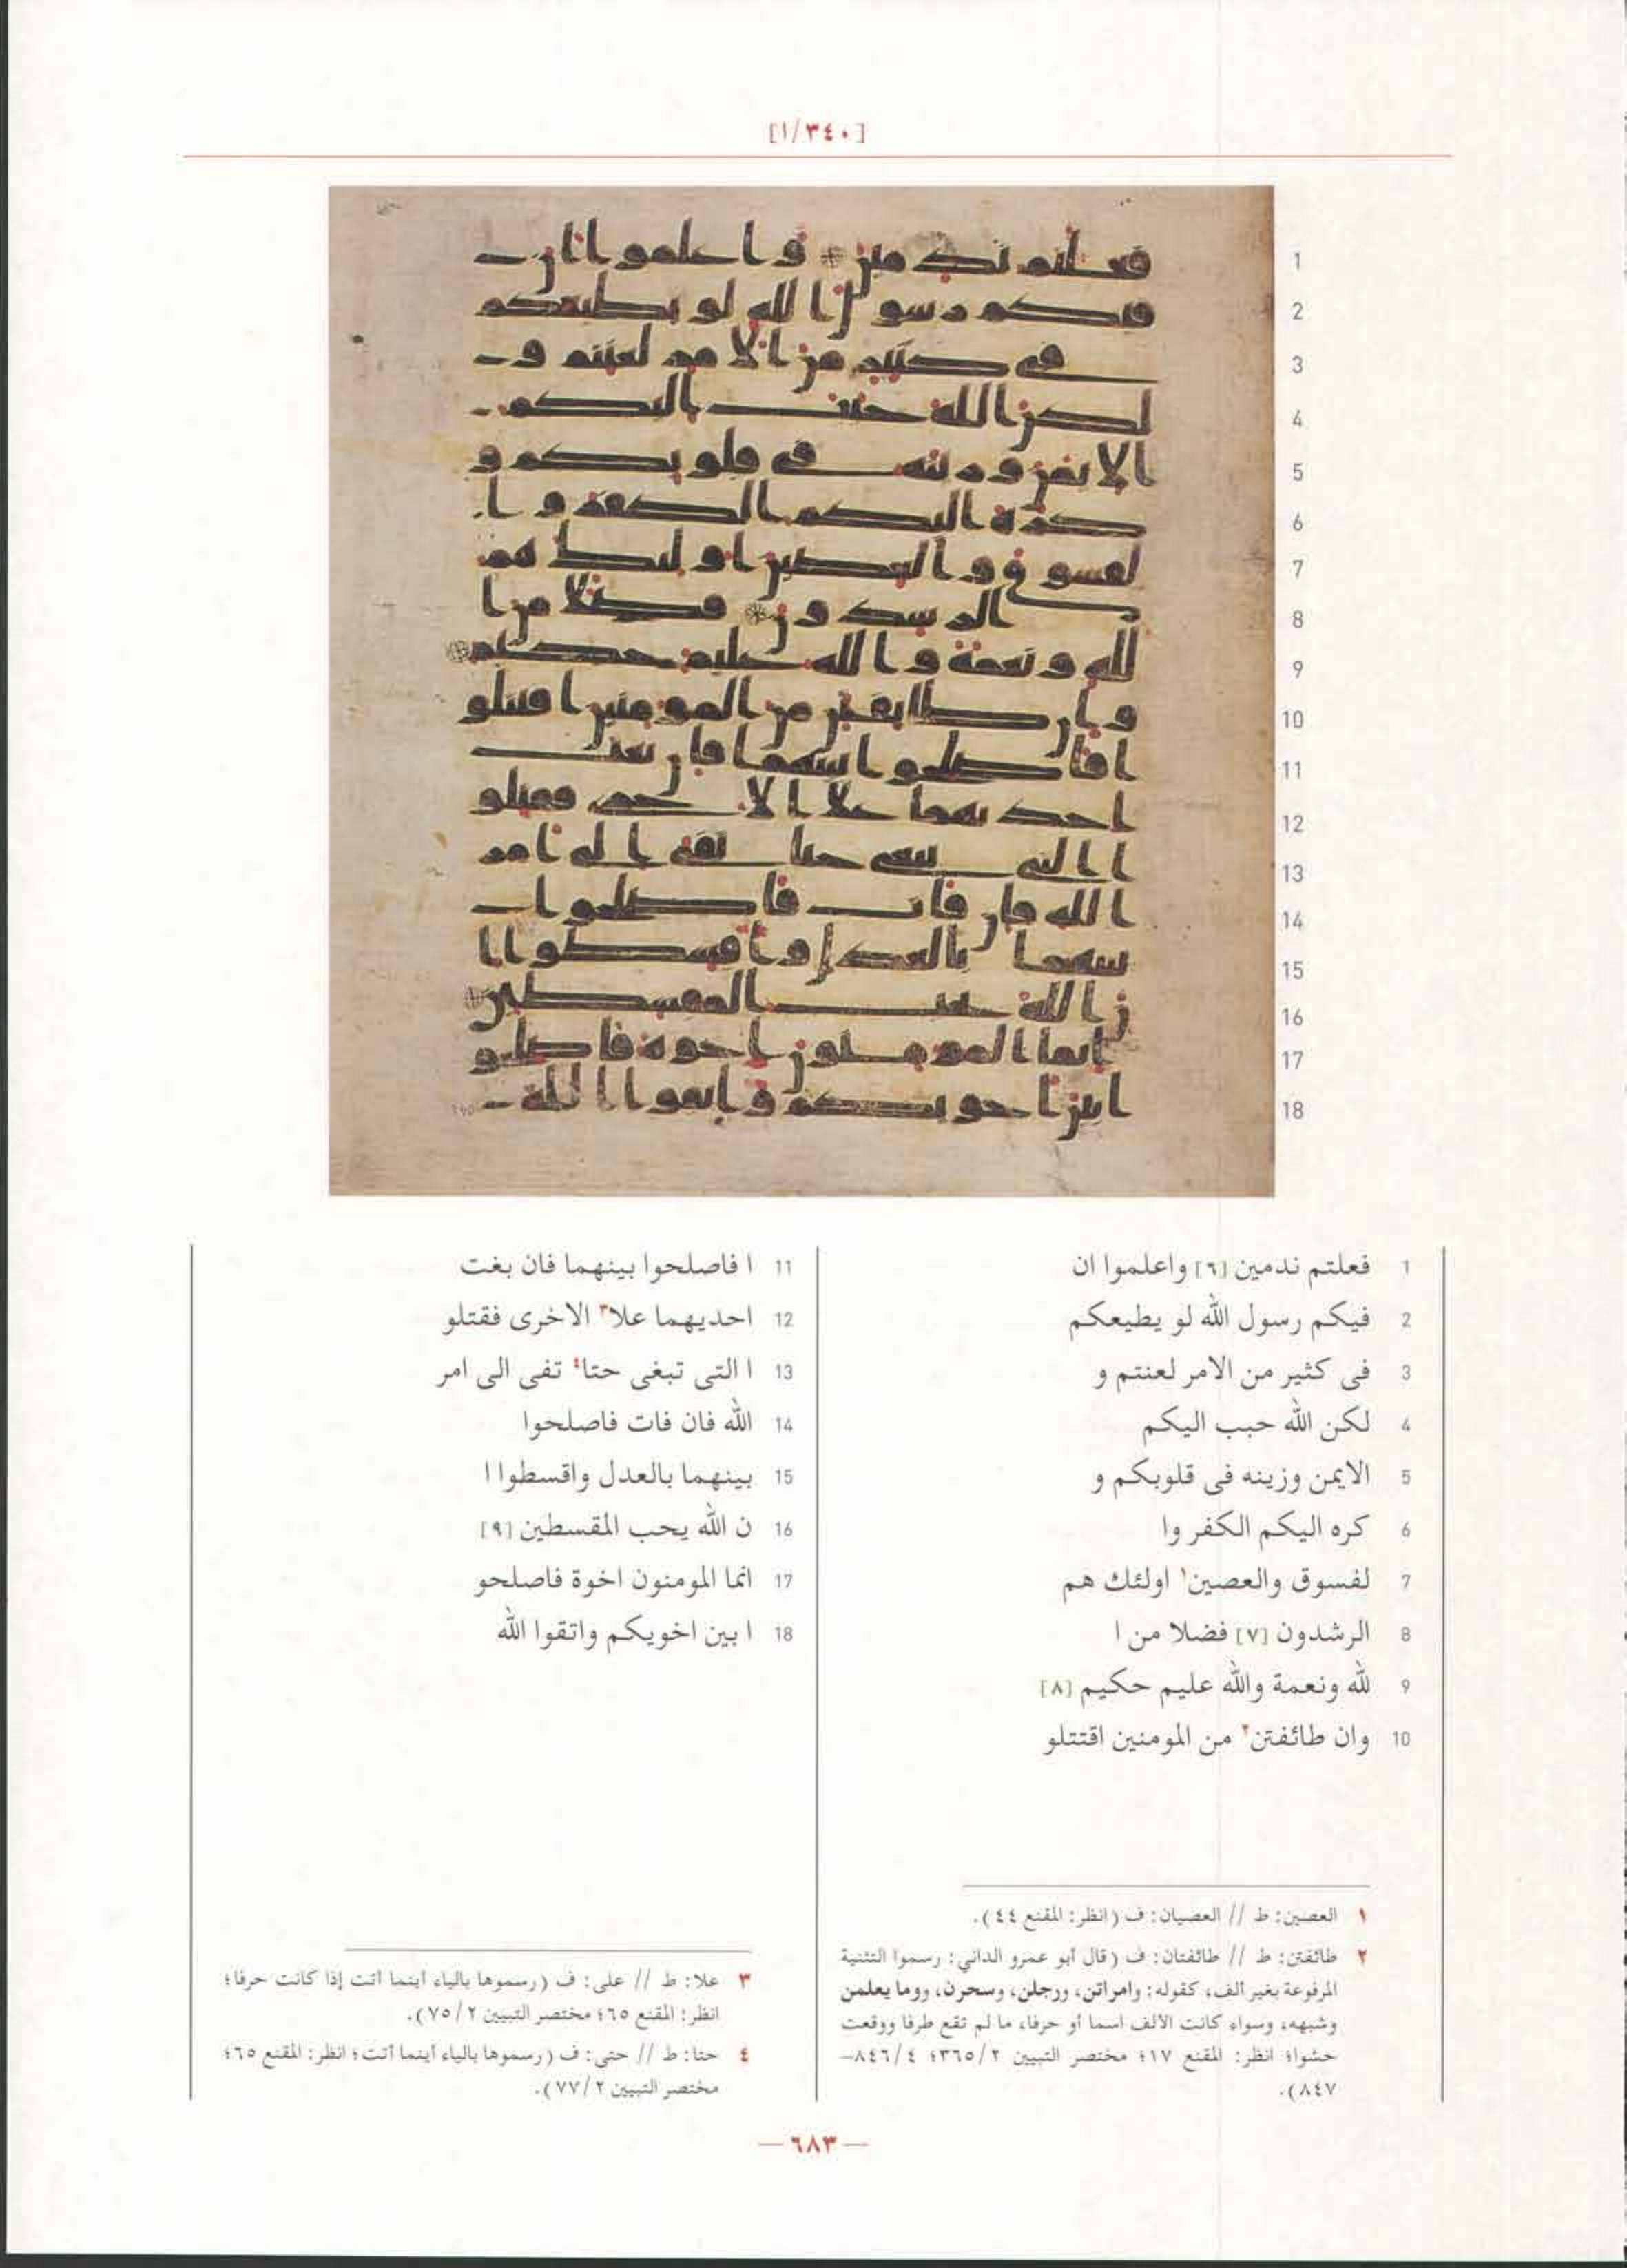 [١/٣٤٠]
1 فعلتم ندمين [٦] واعلموا ان
2 فيكم رسول الله لو يطيعكم
3 فى كثير من الامر لعنتم و
4 لكن الله حبب اليكم
5 الايمن وزينه فى قلوبكم و
6 كره اليكم الكفر وا
7 لفسوق والعصين١ اولئك هم
8 الرشدون [٧] فضلا من ا
9 لله ونعمة والله عليم حكيم [٨]
10 وان طائفتن٢ من المومنين اقتتلو
11 ا فاصلحوا بينهما فان بغت
12 احديهما علا٣ الاخرى فقتلو
13 ا التى تبغى حتا٤ تفى الى امر
14 الله فان فات فاصلحوا
15 بينهما بالعدل واقسطوا ا
16 ن الله يحب المقسطين [٩]
17 انما المومنون اخوة فاصلحو
18 ا بين اخويكم واتقوا الله
١ العصين: ط // العصيان: ف (انظر: المقنع ٤٤).
٢ طائفتن: ط // طائفتان: ف (قال أبو عمرو الداني: رسموا التثنية
المرفوعة بغير ألف، كقوله: وامراتن، ورجلن، وسحرن، وما يعلمن
وشبهه، وسواء كانت الألف اسما أو حرفا، ما لم تقع طرفا ووقعت
حشوا؛ انظر: المقنع ١٧؛ مختصر التبيين ٣٦٥/٢؛ ٨٤٦/٤–
٨٤٧).
٣ علا: ط // على: ف (رسموها بالياء أينما أتت إذا كانت حرفا؛
انظر: المقنع ٦٥؛ مختصر التبيين ٧٥/٢).
٤ حتا: ط // حتى: ف (رسموها بالياء أينما أتت؛ انظر: المقنع ٦٥؛
مختصر التبيين ٧٧/٢).
— ٦٨٣ —